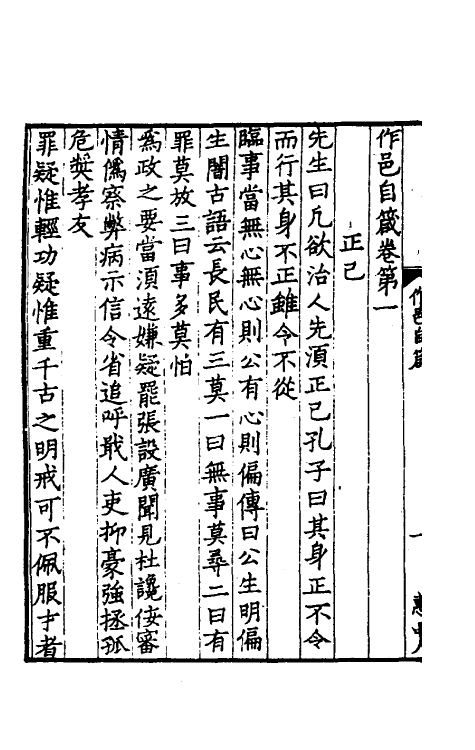 作邑自箴卷第一
正己
先生曰凡欲治人先湏正己孔子曰其身正不令
而行其身不正雖令不從
臨事當無心無心則公有心則偏傳曰公生明偏
生闇古語云長民有三莫一曰無事莫尋二曰有
罪莫放三曰事多莫怕
爲政之要當湏遠嫌疑罷張設廣聞見杜讒佞審
情僞察弊病示信令省追呼戢人吏抑豪強拯孤
危奬孝友
罪疑惟輕功疑惟重千古之明戒可不佩服才者
作邑自箴
一